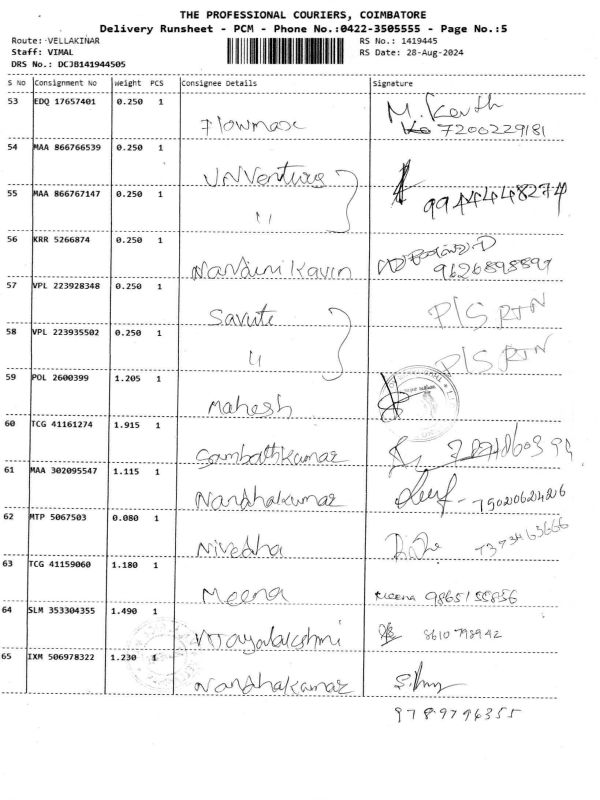 THE PROFESSIONAL COURIERS, COIMBATORE
Delivery Runsheet - PCM - Phone No.:0422-3505555 - Page No.:5
Route: VELLAKINAR RS No.: 1419445
Staff: VIMAL RS Date: 28-Aug-2024
DRS No.: DCJB141944505
S No Consignment No Weight PCS Consignee Details Signature
53 EDQ 17657401 0.250 1
Flowmax 7200229181
54 MAA 866766539 0.250 1
VN Ventures
55 MAA 866767147 0.250 1
" 9944448274
56 KRR 5266874 0.250 1
Nandini Kavin 9626898899
57 VPL 223928348 0.250 1
P/S RTN
58 VPL 223935502 0.250 1
" P/S RTN
59 POL 2600399 1.205 1
Mahesh
60 TCG 41161274 1.915 1
Sambathkumar
61 MAA 302095547 1.115 1
Nandhakumar
62 MTP 5067503 0.080 1
Nivedha
63 TCG 41159060 1.180 1
Meena Meena 9865155856
64 SLM 353304355 1.490 1
Vijayalakshmi 8610798942
65 IXM 506978322 1.230 1
Nandhakumar
9789796355